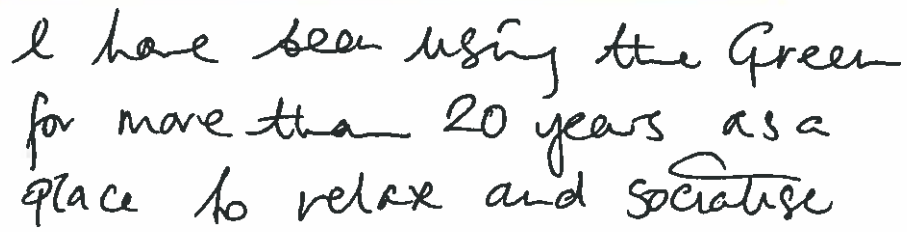 I have been using the Green
for more than 20 years as a
place to relax and socialise